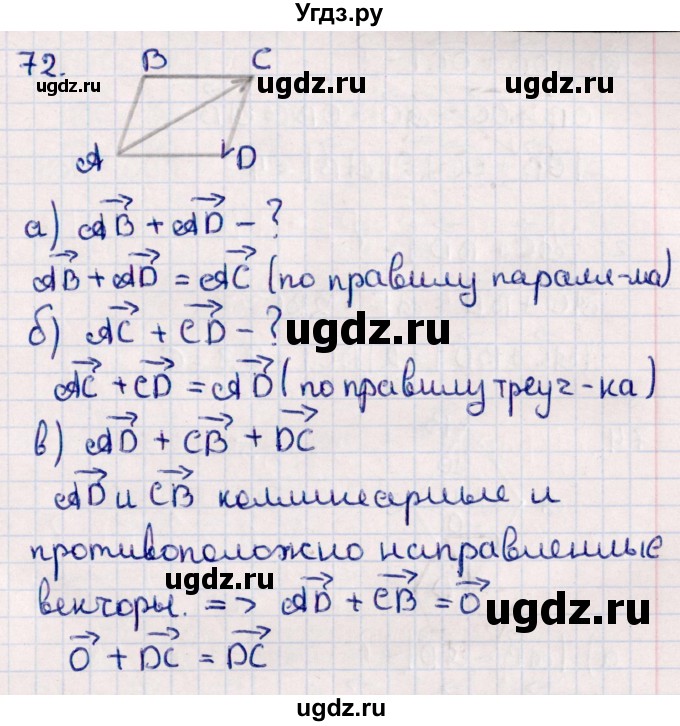 Угдз.ру
72. B C
ugdz.ru ugdz.ru ugdz.ru
A D
а) AB + AD - ?
AB + AD = AC (по правилу паралл-ма)
ugdz.ru
б) AC + CD - ?
AC + CD = AD (по правилу треуг-ка)
в) AD + CB + DC
AD и CB коллинеарные и
противоположно направленные
ugdz.ru
векторы. => AD + CB = 0
ugdz.ru
0 + DC = DC
Угдз.ру